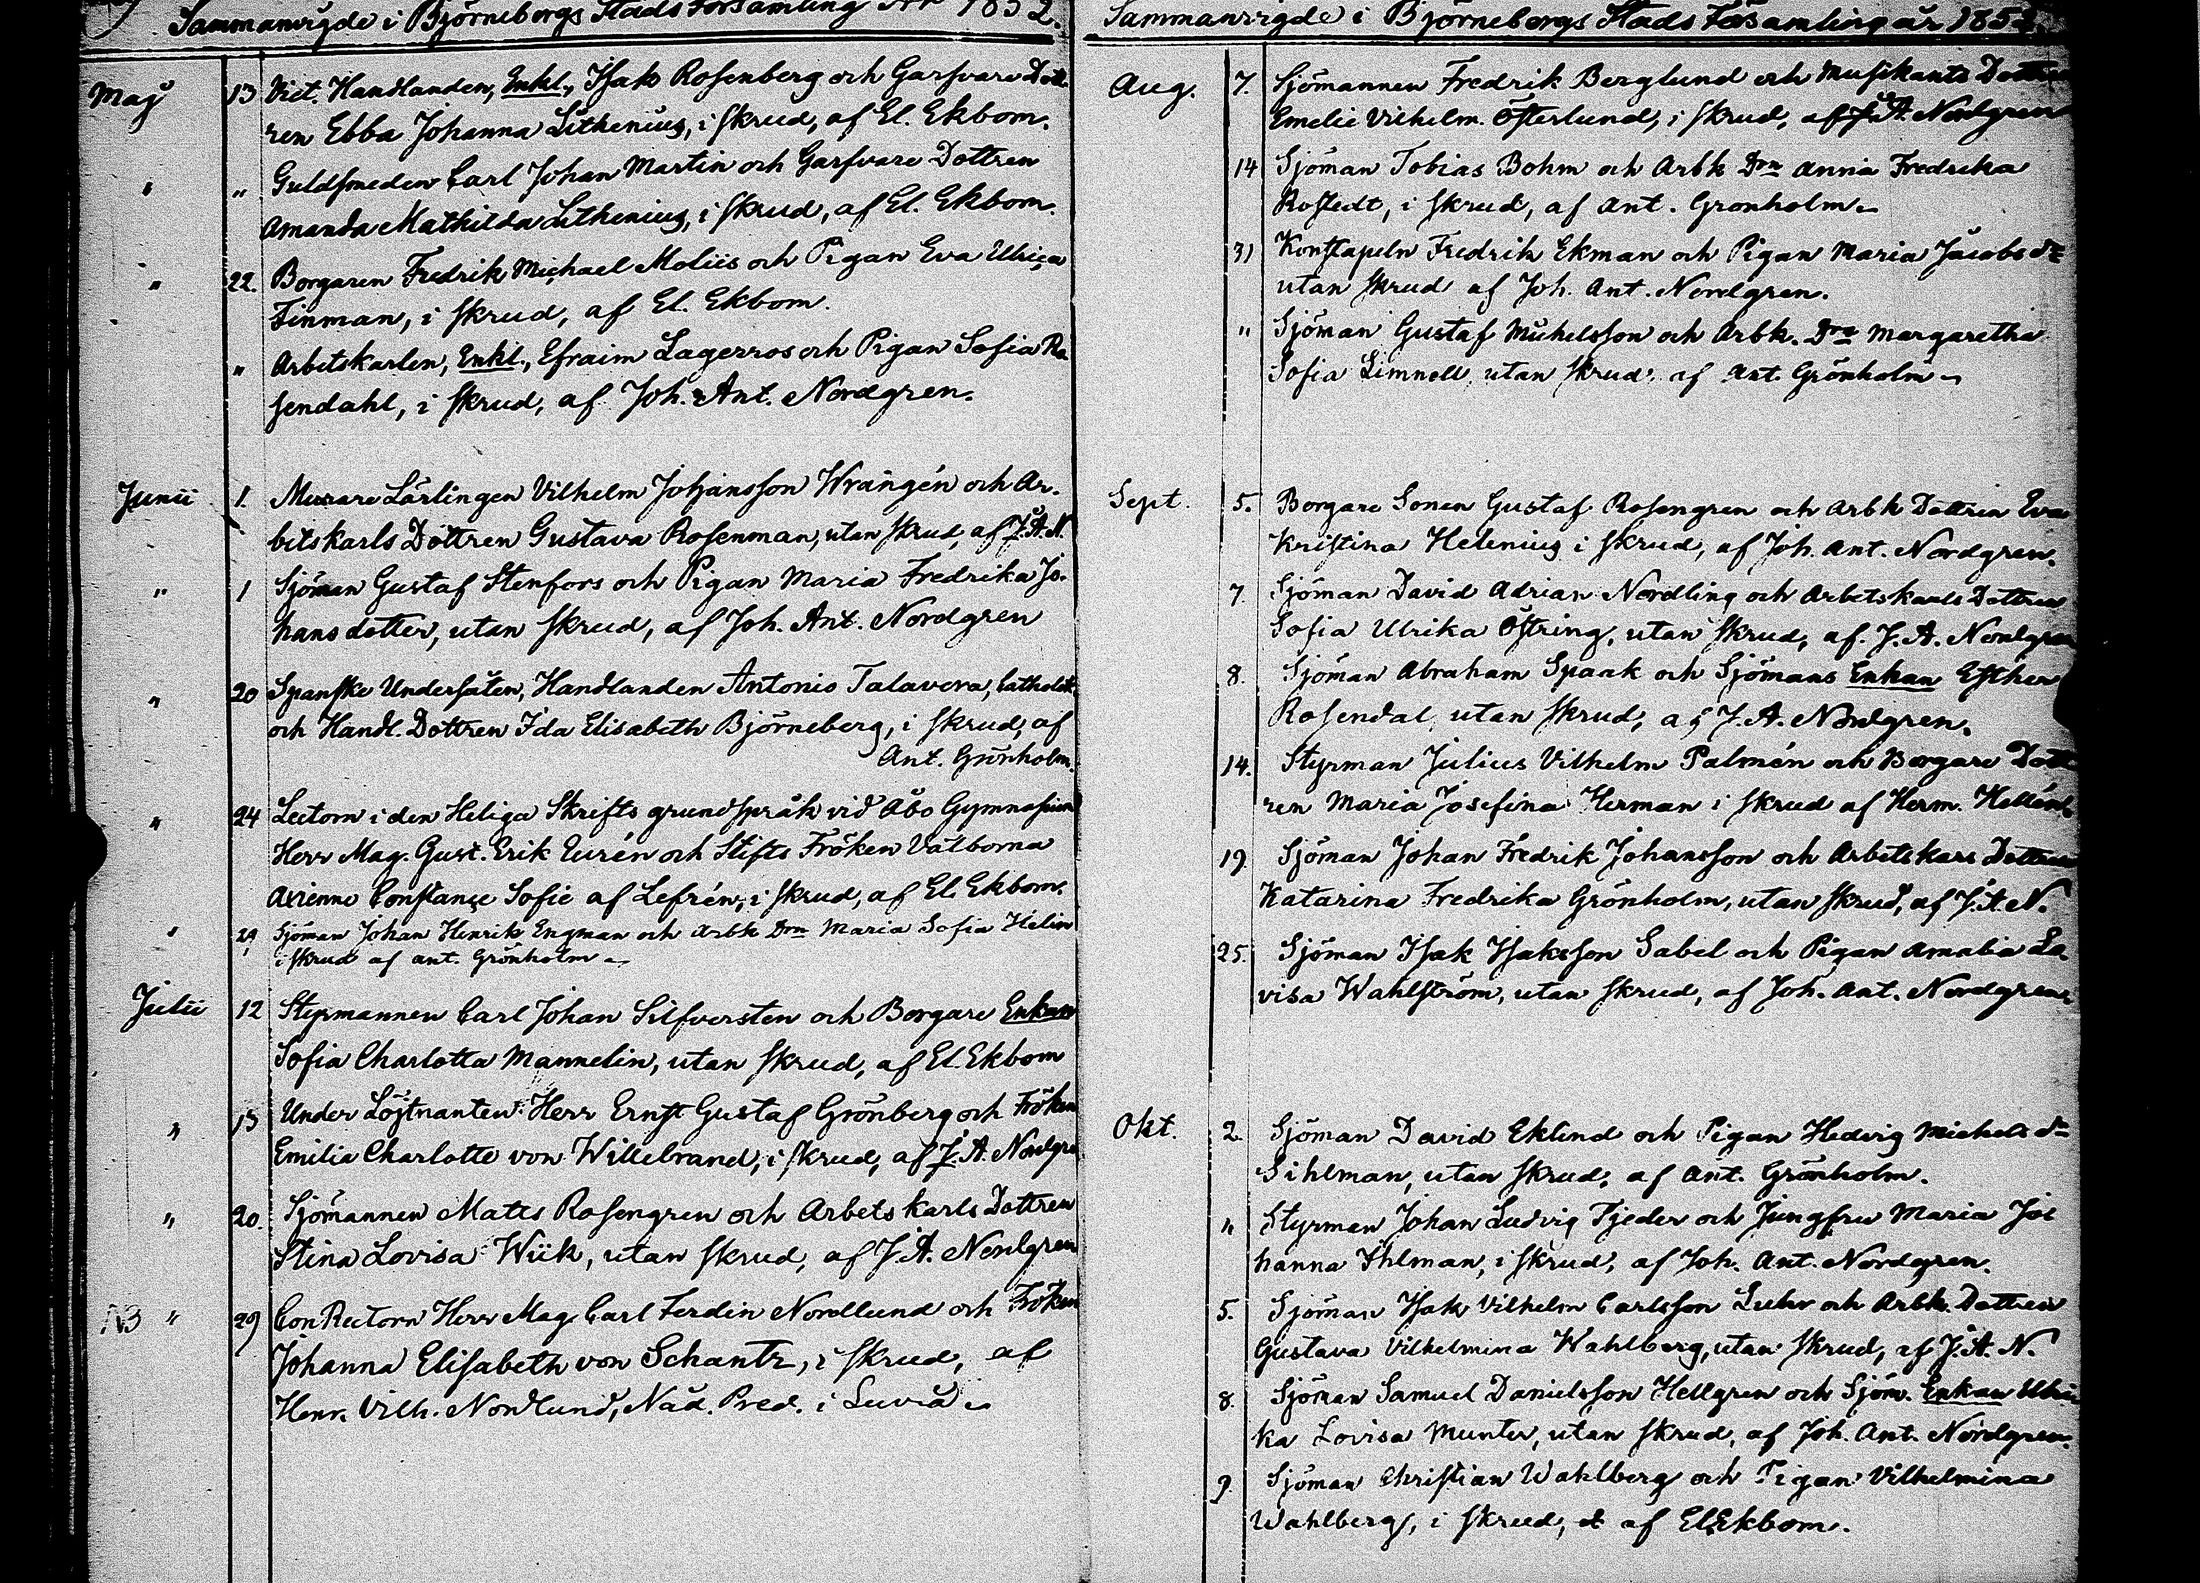 Sammanvigde i Björneborgs Stads Församling År 1852.
Maj 13 Vict. Handlanden, Enkl., Isak Rosenberg och Garfvare Dott
ren Ebba Johanna Lithenius, i skrud, af El. Ekbom.
" " Guldsmeden Carl Johan Martin och Garfvare Dottren
Amanda Mathilda Lithenius, i skrud, af El. Ekbom.
" 22. Borgaren Fredrik Michael Moliis och Pigan Eva Ulrica
Finman, i skrud, af El. Ekbom.
" Arbetskarlen, Enkl., Efraim Lagerros och Pigan Sofia Ro
sendahl, i skrud, af Joh. Ant. Nordgren.
Junii 1. Murare Lärlingen Vilhelm Johansson Wrangén och Ar-
betskarls Dottren Gustava Rosenman, utan skrud, af J. A. N.
" 1 Sjöman Gustaf Stenfors och Pigan Maria Fredrika Jo-
hans dotter, utan skrud, af Joh. Ant. Nordgren
" 20 Spanske Undersåten, Handlanden Antonio Talavera, Catholik,
och Handl. Dottren Ida Elisabeth Björneberg, i skrud, af
Ant. Grönholm.
" 24 Lectorn i den Heliga Skrifts grundspråk vid Åbo Gymnasium
Herr Mag. Gust. Erik Eurén och Stifts Fröken Valborna
Constance Sofie af Lefrén, i skrud, af El. Ekbom.
" 29 Sjöman Johan Henrik Engman och Arbk Drn Maria Sofia Helin
i skrud af Ant. Grönholm
Julii 12 Styrmannen Carl Johan Silfversten och Borgare Enkan
Sofia Charlotta Mannelin, utan skrud, af El. Ekbom
" 15 Under Löjtnanten Herr Ernst Gustaf Grönberg och Fröken
Emilia Charlotte von Willebrand, i skrud, af J. A. Nordgre
" 20. Sjömannen Matts Rosengren och Arbets karls Dottren
Stina Lovisa Wiik, utan skrud, af J. A. Nordgren
NB " 29 Con Rectorn Herr Mag. Carl Ferdin Nordlund och Fröken
Johanna Elisabeth von Schantz, i skrud, af
Henr. Vilh. Nordlund, Nåd. Pred. i Luvia
Sammanvigde i Björneborgs Stads Församling år 1852.
Aug. 7. Sjömannen Fredrik Berglund och Musikants Dottren
Emelie Vilhelm. Österlund, i skrud, af J. A. Nordgren
14 Sjöman Tobias Bohm och Arbk Drn Anna Fredrika
Rostedt, i skrud, af Ant. Grönholm
31 Konstapeln Fredrik Ekman och Pigan Maria Jacobs dr
utan skrud af Joh. Ant. Nordgren.
" Sjöman Gustaf Michelsson och Arbk. Drn Margaretha
Sofia Limnell utan skrud af Ant. Grönholm
Sept. 5. Borgare Sonen Gustaf Rosengren och Arbk Dottren Eva
Kristina Helenius i skrud, af Joh. Ant. Nordgren.
7. Sjöman David Adrian Nordling och Arbetskarls Dottren
Sofia Ulrika Östring, utan skrud, af J. A. Nordgren
8. Sjöman Abraham Spaak och Sjömans Enkan Esther
Rosendal, utan skrud, af J. A. Nordgren.
14. Styrman Julius Vilhelm Palmén och Borgare Dott
ren Maria Josefina Herman i skrud af Herm. Hellén
19 Sjöman Johan Fredrik Johansson och Arbetskars Dottren
Katarina Fredrika Grönholm, utan skrud, af J. A. N.
25. Sjöman Isak Isaksson Sabel och Pigan Amalia Lo-
visa Wahlström, utan skrud, af Joh. Ant. Nordgren
Okt. 2. Sjöman David Eklind och Pigan Hedvig Michels dr
Sihlman, utan skrud, af Ant. Grönholm.
" Styrman Johan Ludvig Tjeder och Jungfru Maria Jo
hanna Ihlman, i skrud, af Joh. Ant. Nordgren.
5. Sjöman Isak Vilhelm Carlsson Luhr och Arbk. Dottren
Gustava Vilhelmina Wahlberg, utan skrud, af J. A. N.
8. Sjöman Samuel Danielsson Hellgren och Sjöm. Enkan Ulri
ka Lovisa Munter, utan skrud, af Joh. Ant. Nordgren.
9. Sjöman Christian Wahlberg och Pigan Vilhelmina
Wahlberg, i skrud, af El Ekbom.